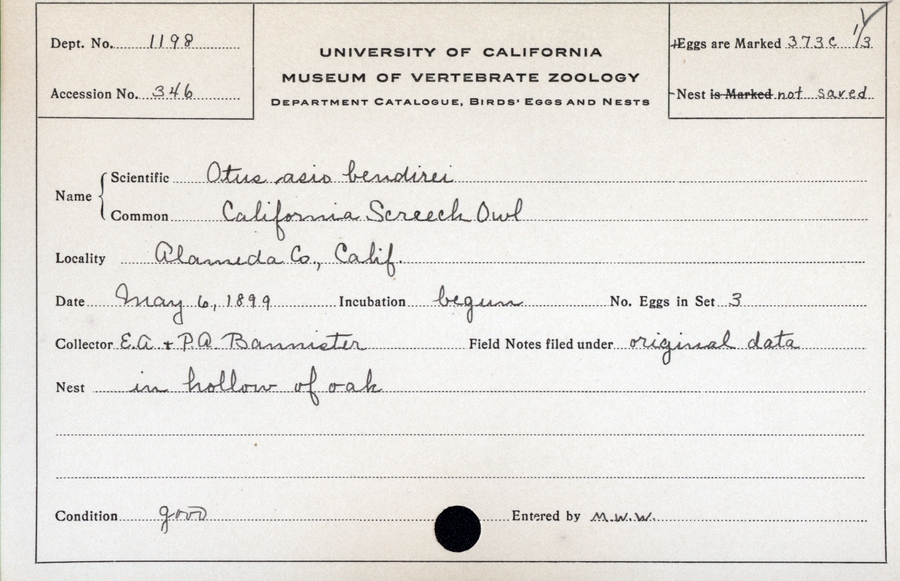 Dept. No. 1198
Accession No. 346
UNIVERSITY OF CALIFORNIA
MUSEUM OF VERTEBRATE ZOOLOGY
DEPARTMENT CATALOGUE, BIRDS' EGGS AND NESTS
Eggs are Marked 373c 1/3
Nest is Marked not saved
Name
Scientific Otus asio bendirei
Common California Screech Owl
Locality Alameda Co., Calif.
Date May 6, 1899 Incubation begun No. Eggs in Set 3
Collector E.A. + P.A. Bannister Field Notes filed under original data
Nest in hollow of oak
Condition good Entered by M.W.W.